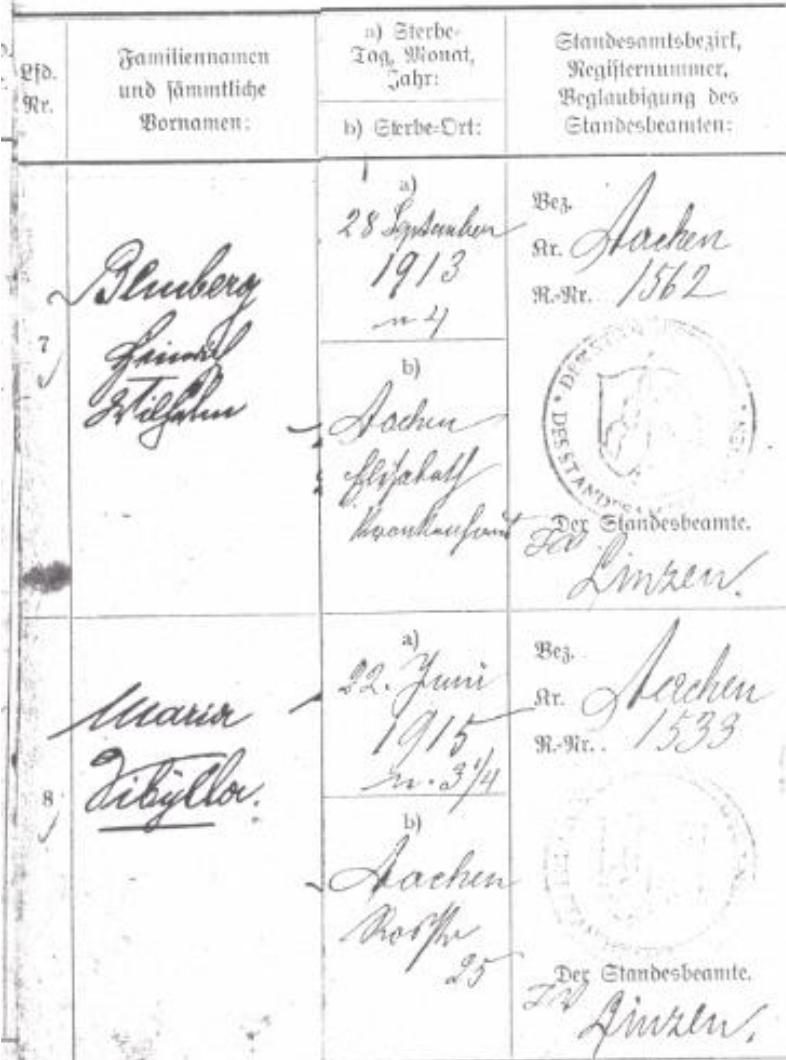 Lfd.
Nr.
Familiennamen
und sämmtliche
Vornamen:
a) Sterbe-
Tag, Monat,
Jahr:
b) Sterbe-Ort:
Standesamtsbezirk,
Registernummer,
Beglaubigung des
Standesbeamten:
7
Blumberg
Heinrich
Wilhelm
a)
28 September
1913
n 4
b)
Aachen
Elisabeth
Krankenhaus
Bez.
Kr. Aachen
R.-Nr. 1562
Der Standesbeamte.
Linzen.
8
Maria
Sibylla.
a)
22. Juni
1915
n. 3 1/4
b)
Aachen
Rosstr
25
Bez.
Kr. Aachen
R.-Nr. 1533
Der Standesbeamte.
IV
Linzen.